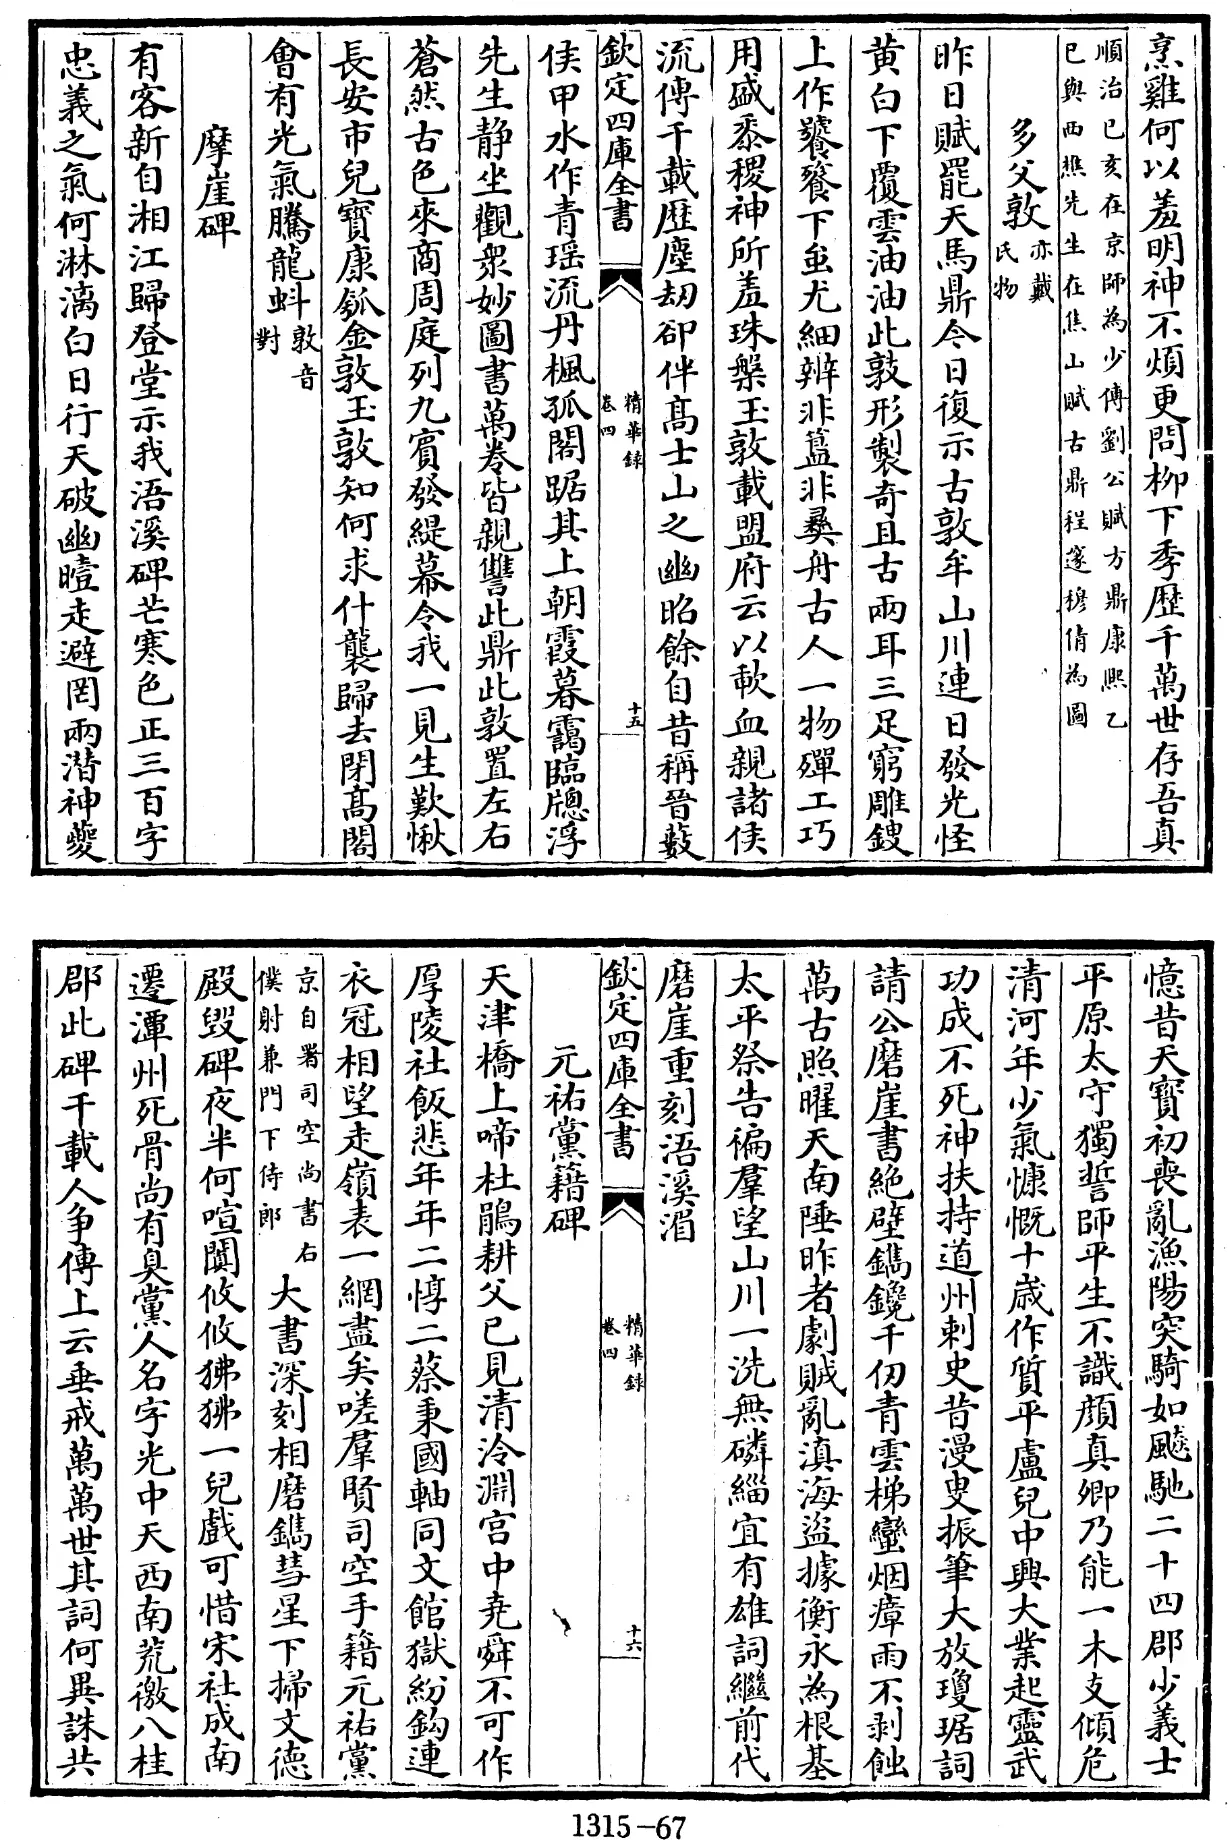 烹雞何以羞明神不煩更問柳下季歷千萬世存吾真
順治已亥在京師為少傅劉公賦方鼎康熙乙
已與西樵先生在焦山賦古鼎程邃穆倩為圖
多父敦亦戴氏物
昨日賦罷天馬鼎今日復示古敦牟山川連日發光怪
黄白下覆雲油油此敦形製奇且古兩耳三足窮雕鎪
上作饕餮下蚩尤細辨非簋非彝舟古人一物殫工巧
用盛黍稷神所羞珠槃玉敦載盟府云以歃血親諸侯
流傳千載歷塵刼卻伴髙士山之幽昭餘自昔稱晉藪
欽定四庫全書
精華録
卷四
十五
侯甲水作青瑶流丹楓孤閣踞其上朝霞暮靄臨牕浮
先生静坐觀衆妙圖書萬卷皆親讐此鼎此敦置左右
蒼然古色來商周庭列九賓發緹幕令我一見生歎愀
長安市兒寳康瓠金敦玉敦知何求什襲歸去閉髙閣
會有光氣騰龍蚪敦音對
摩崖碑
有客新自湘江歸登堂示我浯溪碑芒寒色正三百字
忠義之氣何淋漓白日行天破幽曀走避罔兩潜神夔
憶昔天寳初喪亂漁陽突騎如飇馳二十四郡少義士
平原太守獨誓師平生不識顔真卿乃能一木支傾危
清河年少氣慷慨十歲作質平盧兒中興大業起靈武
功成不死神扶持道州刺史昔漫叟振筆大放瓊琚詞
請公磨崖書絶壁鐫鑱千仞青雲梯蠻烟瘴雨不剥蝕
萬古照曜天南陲昨者劇賊亂滇海盜據衡永為根基
太平祭告徧羣望山川一洗無磷緇宜有雄詞繼前代
磨崖重刻浯溪湄
欽定四庫全書
精華録
卷四
十六
元祐黨籍碑
天津橋上啼杜鵑耕父已見清泠淵宫中堯舜不可作
厚陵社飯悲年年二惇二蔡秉國軸同文館獄紛鈎連
衣冠相望走嶺表一網盡矣嗟羣賢司空手籍元祐黨
京自署司空尚書右僕射兼門下侍郎大書深刻相磨鐫彗星下掃文德
殿毁碑夜半何喧闐攸攸狒狒一兒戲可惜宋社成南
遷潭州死骨尚有臭黨人名字光中天西南荒徼八桂
郡此碑千載人争傳上云垂戒萬萬世其詞何異誅共
1315-67